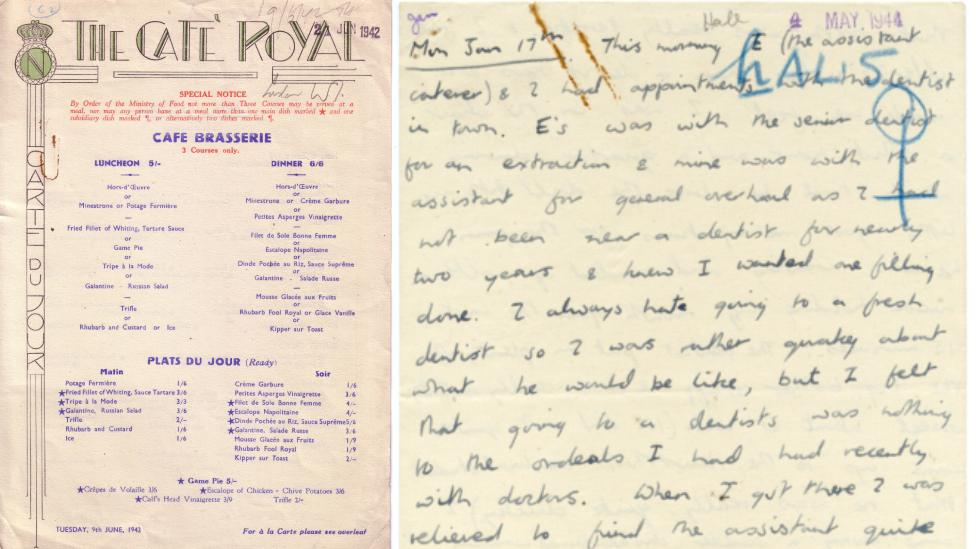 THE CAFÉ ROYAL
21 JUN 1942
N
CARTE DU JOUR
SPECIAL NOTICE
By Order of the Ministry of Food not more than Three Courses may be served at a
meal, nor may any person have at a meal more than one main dish marked ★ and one
subsidiary dish marked ¶, or alternatively two dishes marked ¶.
CAFE BRASSERIE
3 Courses only.
LUNCHEON 5/-
Hors-d'Œuvre
or
Minestrone or Potage Fermière
Fried Fillet of Whiting, Tartare Sauce
or
Game Pie
or
Tripe à la Mode
or
Galantine - Russian Salad
Trifle
or
Rhubarb and Custard or Ice
DINNER 6/6
Hors-d'Œuvre
or
Minestrone or Crème Garbure
or
Petites Asperges Vinaigrette
Filet de Sole Bonne Femme
or
Escalope Napolitaine
or
Dinde Pochée au Riz, Sauce Suprême
or
Galantine - Salade Russe
Mousse Glacée aux Fruits
or
Rhubarb Fool Royal or Glace Vanille
or
Kipper sur Toast
PLATS DU JOUR (Ready)
Matin
Potage Fermière 1/6
★Fried Fillet of Whiting, Sauce Tartare 3/6
★Tripe à la Mode 3/3
★Galantine, Russian Salad 3/6
Trifle 2/-
Rhubarb and Custard 1/6
Ice 1/6
Soir
Crème Garbure 1/6
Petites Asperges Vinaigrette 3/6
★Filet de Sole Bonne Femme 4/-
★Escalope Napolitaine 4/-
★Dinde Pochée au Riz, Sauce Suprême 5/6
★Galantine, Salade Russe 3/6
Mousse Glacée aux Fruits 1/9
Rhubarb Fool Royal 1/9
Kipper sur Toast 2/-
★ Game Pie 5/-
★Crêpes de Volaille 3/6 ★Escalope of Chicken - Chive Potatoes 3/6
★Calf's Head Vinaigrette 3/9 Trifle 2/-
TUESDAY, 9th JUNE, 1942 For à la Carte please see overleaf
Hall
4 MAY 1944
Mon Jan 17th This morning E (the assistant
caterer) & I had appointments with the dentist
in town. E's was with the senior dentist
for an extraction & mine was with the
assistant for general overhaul as I had
not been near a dentist for nearly
two years & knew I wanted one filling
done. I always hate going to a fresh
dentist so I was rather quaky about
what he would be like, but I felt
that going to a dentists was nothing
to the ordeals I had had recently
with doctors. When I got there I was
relieved to find the assistant quite